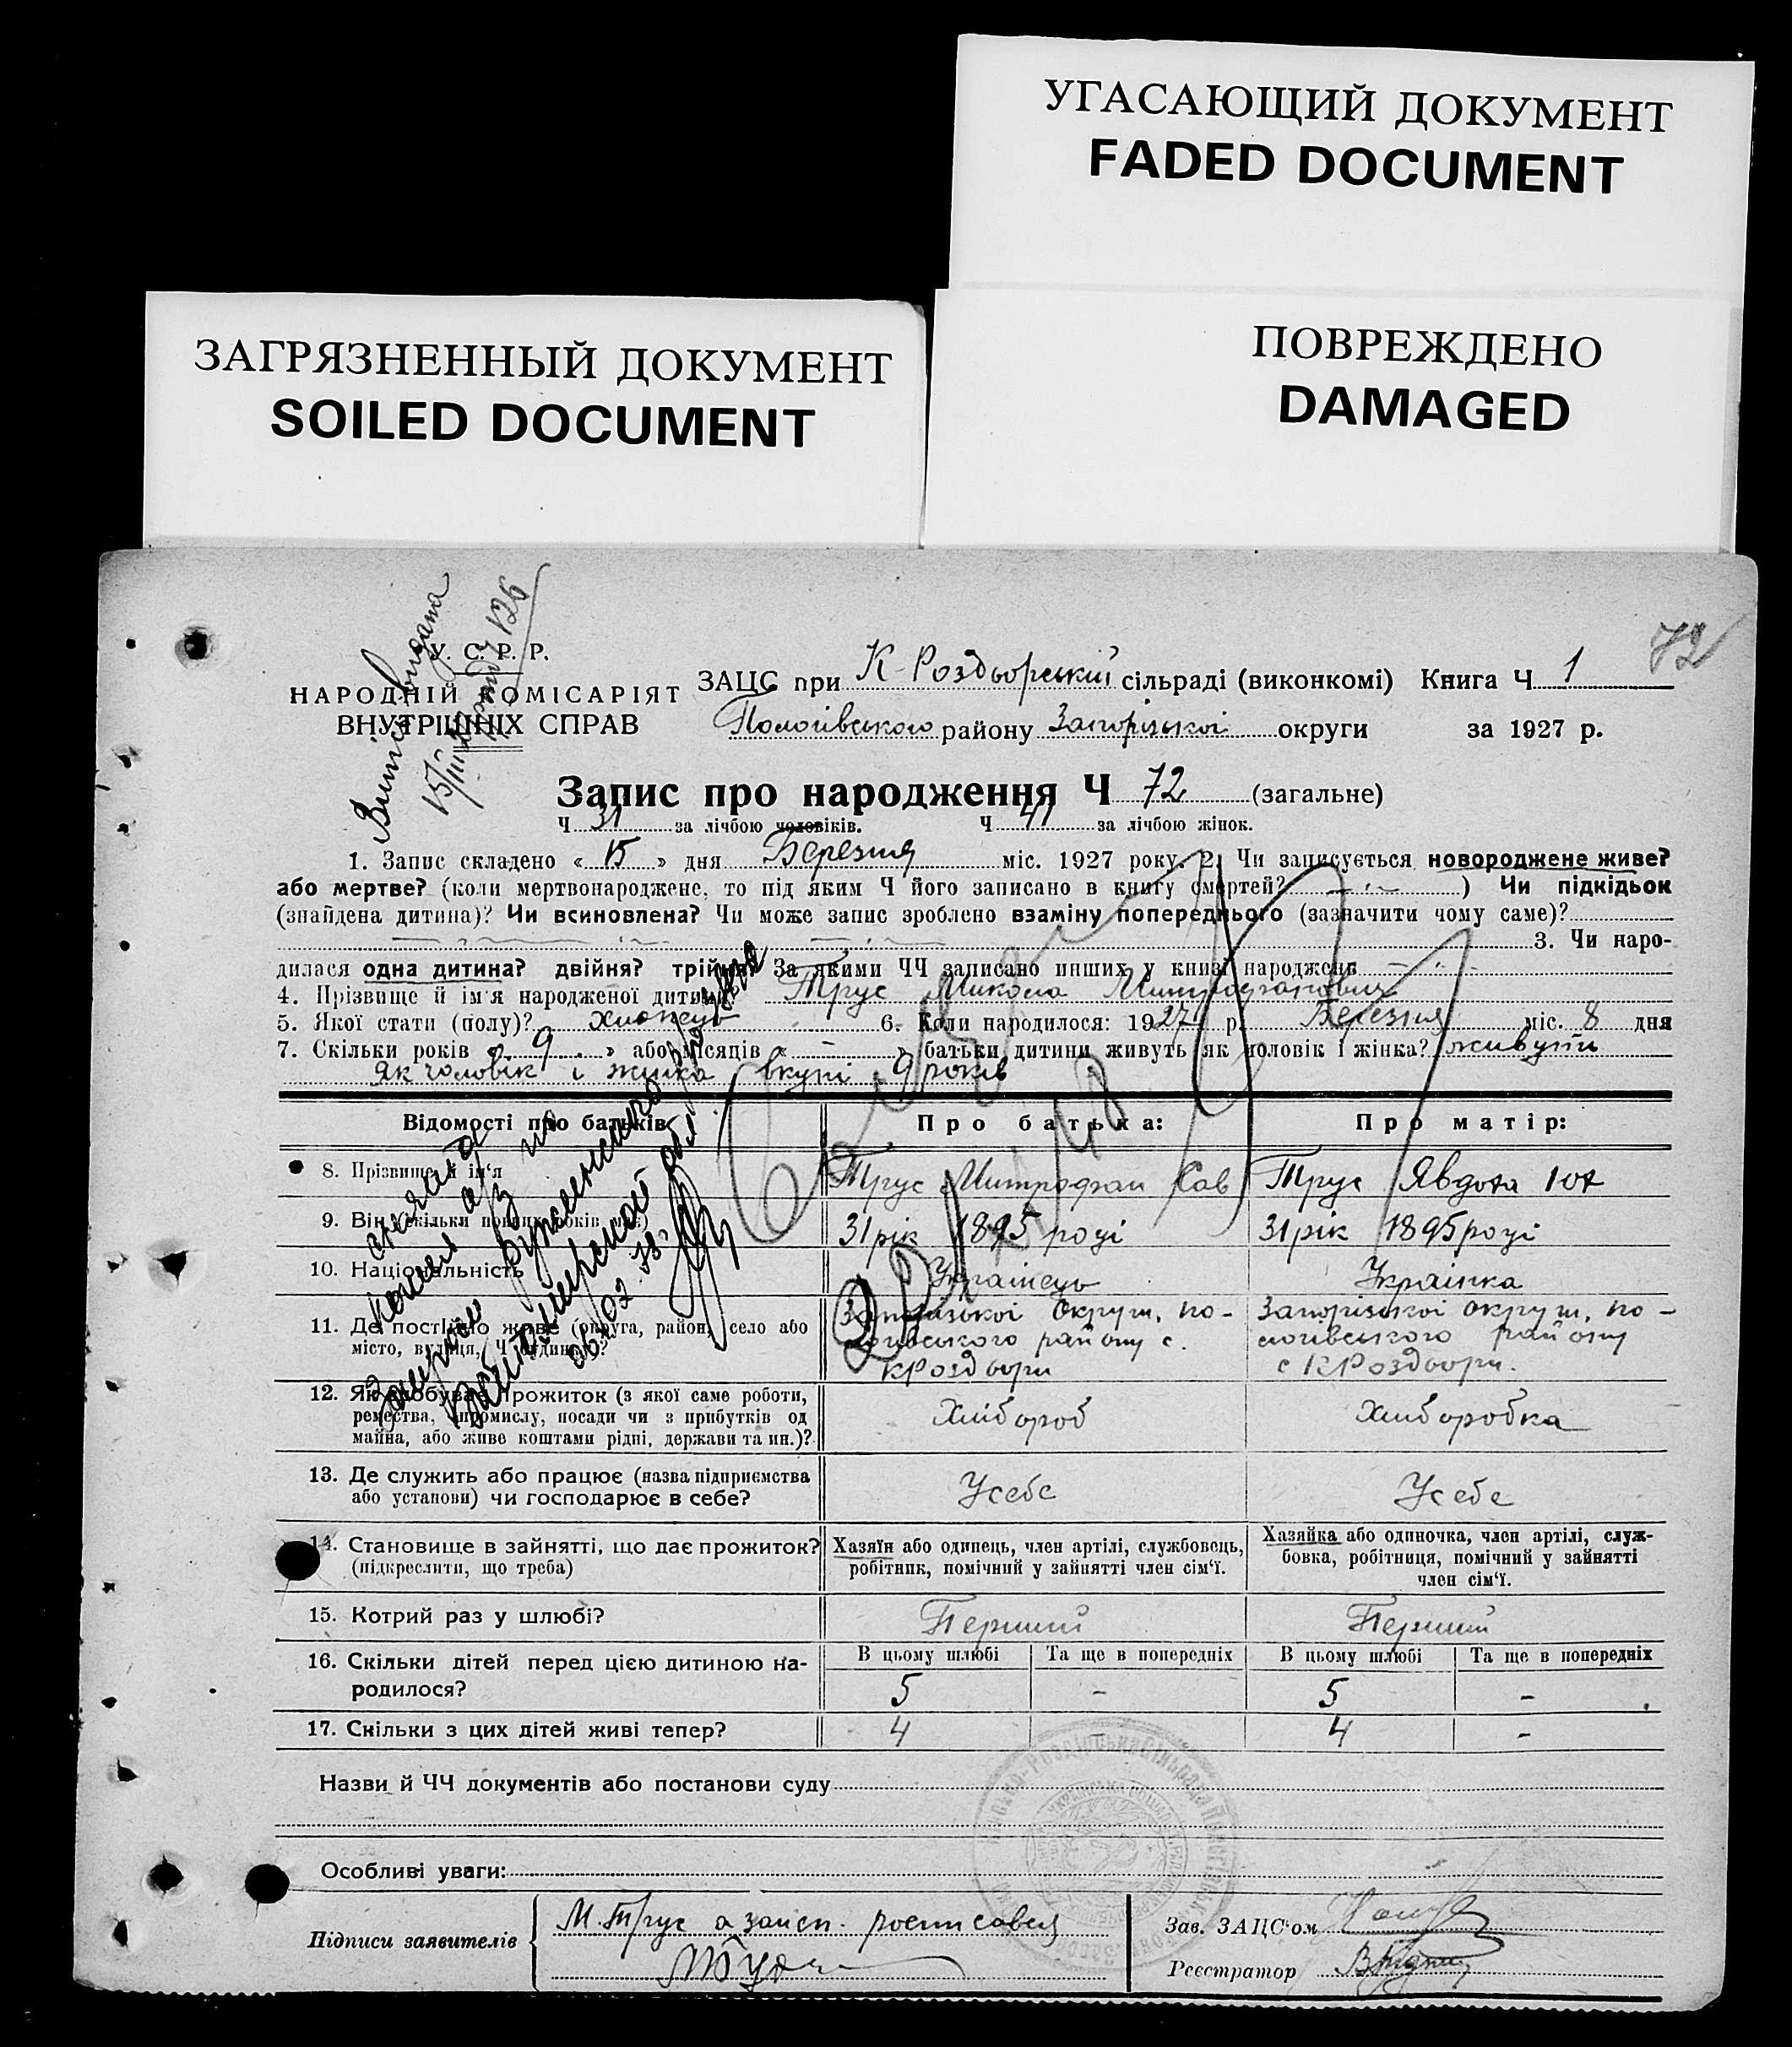 УГАСАЮЩИЙ ДОКУМЕНТ
FADED DOCUMENT
ЗАГРЯЗНЕННЫЙ ДОКУМЕНТ
SOILED DOCUMENT
ПОВРЕЖДЕНО
DAMAGED
72
Витяг видата
15/III
У. С. Р. Р.
НАРОДНІЙ КОМІСАРІЯТ
ВНУТРІШНІХ СПРАВ
ЗАЦС при К-Роздьорській сільраді (виконкомі) Книга Ч 1
Пологівського району Запорізької округи за 1927 р.
Запис про народження Ч 72 (загальне)
Ч 31 за лічбою чоловіків. Ч 41 за лічбою жінок.
1. Запис складено « 15 » дня Березня міс. 1927 року. 2. Чи записується новороджене живе?
або мертве? (коли мертвонароджене, то під яким Ч його записано в книгу смертей? ) Чи підкідьок
(знайдена дитина)? Чи всиновлена? Чи може запис зроблено взаміну попереднього (зазначити чому саме)?
3. Чи наро-
дилася одна дитина? двійня? трійня? За якими ЧЧ записано инших у книзі народжень
4. Прізвище й ім'я народженої дитини? Трус Микола Митрофанович
5. Якої стати (полу)? Хлопець 6. Коли народилося: 1927 р. Березня міс. 8 дня
7. Скільки років « 9 » або місяців « – » батьки дитини живуть як чоловік і жінка? живуть
як чоловік і жинка вкупі 9 років
Відомості про батьків Про батька: Про матір:
8. Прізвище й ім'я Трус Митрофан Сав Трус Явдоха
9. Він (скільки повних років має) 31 рік 1895 році 31 рік 1895 році
10. Національність Українець Українка
11. Де постійно живе (округа, район, село або Запорізької округи, по- Запорізької округи, по-
місто, вулиця, Ч будинку)? логівського району с. логівського району
КРоздори с КРоздори.
12. Як здобуває прожиток (з якої саме роботи,
ремества, промислу, посади чи з прибутків од Хлібороб Хліборобка
майна, або живе коштами рідні, держави та ин.)?
13. Де служить або працює (назва підприємства
або установи) чи господарює в себе? Усебе Усебе
14. Становище в зайнятті, що дає прожиток? Хазяїн або одинець, член артілі, службовець, Хазяйка або одиночка, член артілі, служ-
(підкреслити, що треба) робітник, помічний у зайнятті член сім'ї. бовка, робітниця, помічний у зайнятті
член сім'ї.
15. Котрий раз у шлюбі? Перший Перший
16. Скільки дітей перед цією дитиною на- В цьому шлюбі Та ще в попередніх В цьому шлюбі Та ще в попередніх
родилося? 5 – 5 –
17. Скільки з цих дітей живі тепер? 4 4 –
Назви й ЧЧ документів або постанови суду
Особливі уваги:
Підписи заявителів М. Трус росписався
Зав. ЗАЦС'ом
Реєстратор